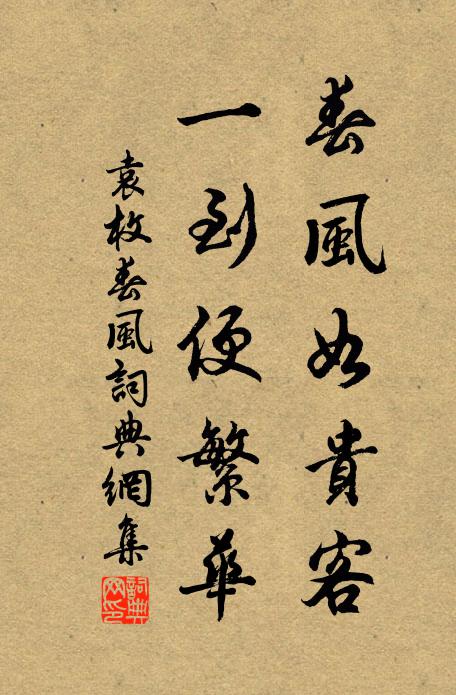 春風如貴客
一到便繁華
袁枚春風詞典網集
詞典网印